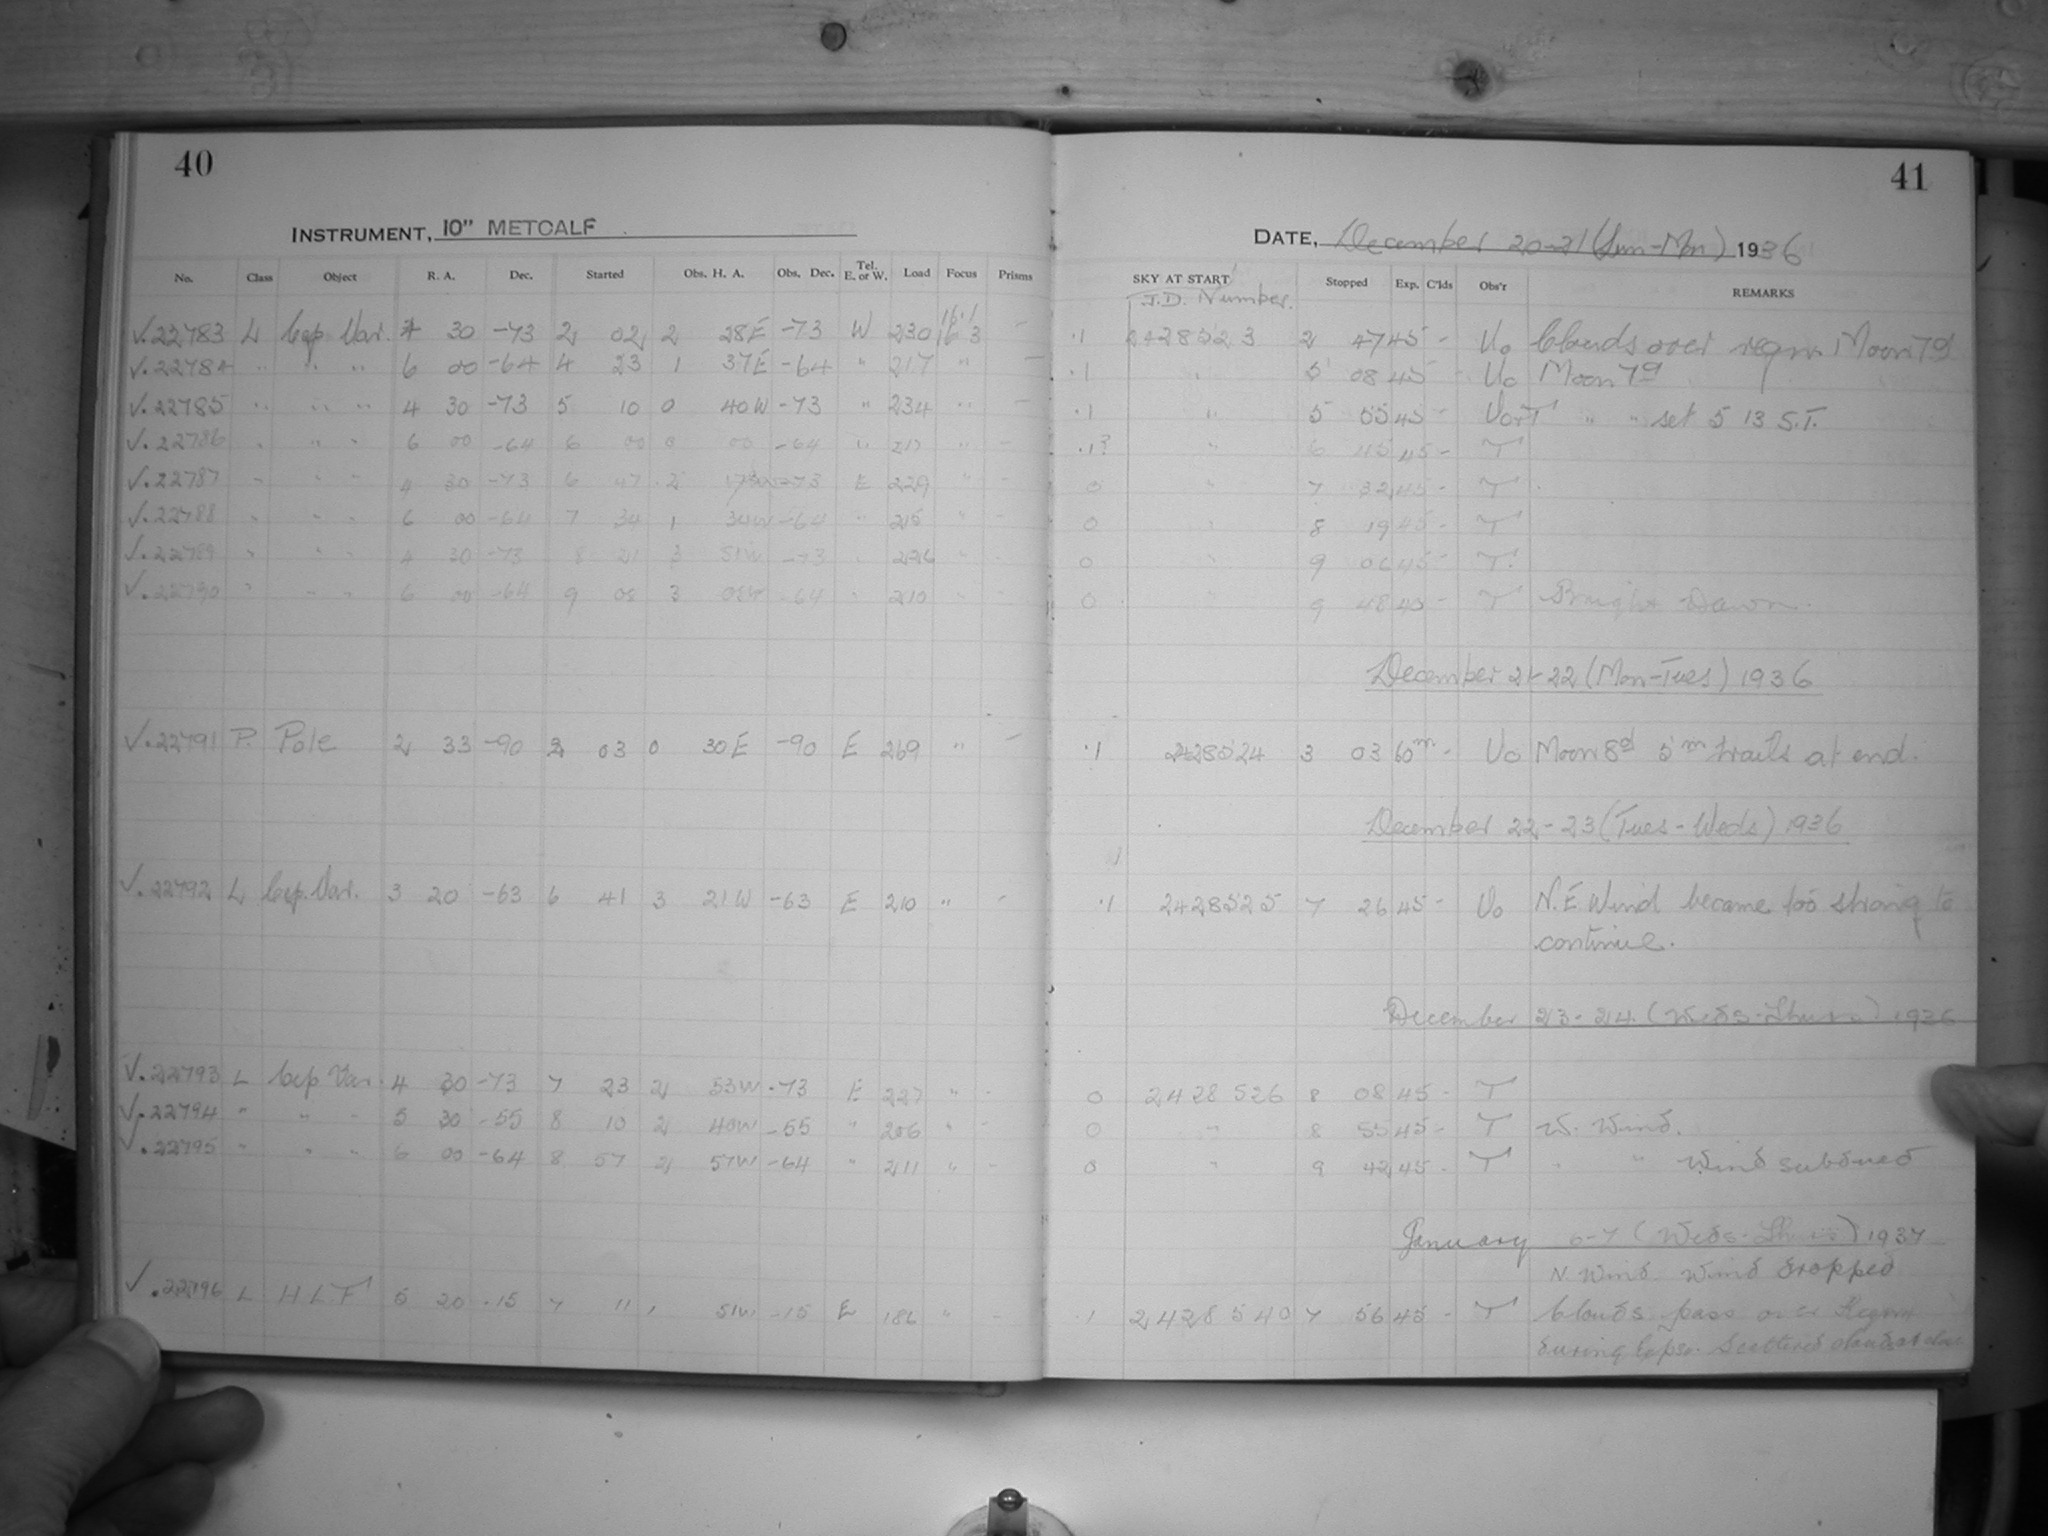 40
INSTRUMENT, 10" METCALF
No. Class Object R. A. Dec. Started Obs. H. A. Obs. Dec. Tel. E. or W. Load Focus Prisms
16.1
✓.22783 L Cep. Var. 4 30 -73 2 02 2 28E -73 W 230 16 3 -
✓.22784 " " " 6 00 -64 4 23 1 37E -64 " 217 " -
✓.22785 " " " 4 30 -73 5 10 0 40W -73 " 234 " -
✓.22786 " " " 6 00 -64 6 00 0 00 -64 " 217 " -
✓.22787 " " " 4 30 -73 6 47 2 17W -73 E 229 " -
✓.22788 " " " 6 00 -64 7 34 1 34W -64 " 215 " -
✓.22789 " " " 4 30 -73 8 21 3 51W -73 " 226 " -
✓.22790 " " " 6 00 -64 9 03 3 03W -64 " 210 " -
✓.22791 P. Pole 2 33 -90 2 03 0 30E -90 E 269 " -
✓.22792 L Cep. Var. 3 20 -63 6 41 3 21W -63 E 210 " -
✓.22793 L Cep Var. 4 30 -73 7 23 2 53W -73 E 227 " -
✓.22794 " " " 5 30 -55 8 10 2 40W -55 " 206 " -
✓.22795 " " " 6 00 -64 8 57 2 57W -64 " 211 " -
✓.22796 L HLF 5 20 -15 7 11 1 51W -15 E 186 " -
41
DATE, December 20-21 (Sun-Mon) 1936
SKY AT START Stopped Exp. C'lds Obs'r REMARKS
J.D. Number.
.1 2428523 2 47 45 - Uo Clouds over region Moon 7d
.1 " 5 08 45 - Uo Moon 7d
.1 " 5 55 45 - Uo+T " " set 5 13 S.T.
.1? " 6 45 45 - T
0 " 7 32 45 - T
0 " 8 19 45 - T
0 " 9 06 45 - T.
0 " 9 48 45 - T Bright Dawn.
December 21-22 (Mon-Tues) 1936
.1 2428524 3 03 60m - Uo Moon 8d 5m trails at end.
December 22-23 (Tues-Weds) 1936
.1 2428525 7 26 45 - Uo N.E Wind became too strong to
continue.
December 23-24. (Weds-Thurs) 1936
0 2428526 8 08 45 - T
0 " 8 55 45 - T W. Wind.
0 " 9 42 45 - T " " Wind subdued
January 6-7 (Weds-Thurs) 1937
N Wind Wind dropped
.1 2428540 7 56 45 - T Clouds pass over Region
during Expsr. Scattered clouds at close